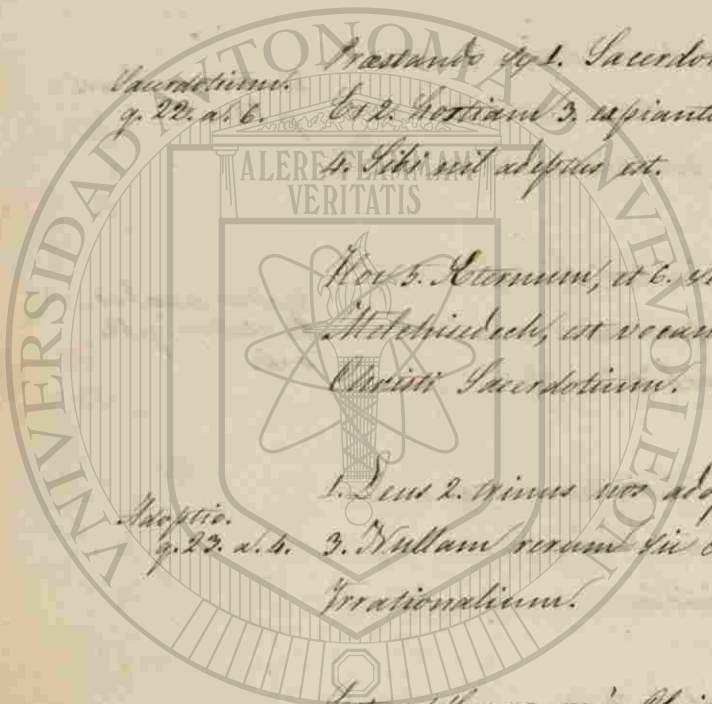 Sacerdotium.
q. 22. a. 6.
Præstando
1. Sacerdo
Et 2. Hostiam 3. expiant
4. Sibi nil adeptus est.
Hoc 5. Æternum, et 6.
Melchisedech, est vocan
Christi Sacerdotium.
Adoptio.
q. 23. a. 4.
1. Deus 2. trinus nos ado
3. Nullam rerum sic
Irrationalium.
UNIVERSIDAD AUTONOMA DE NUEVO LEON
ALERE FLAMMAM
VERITATIS